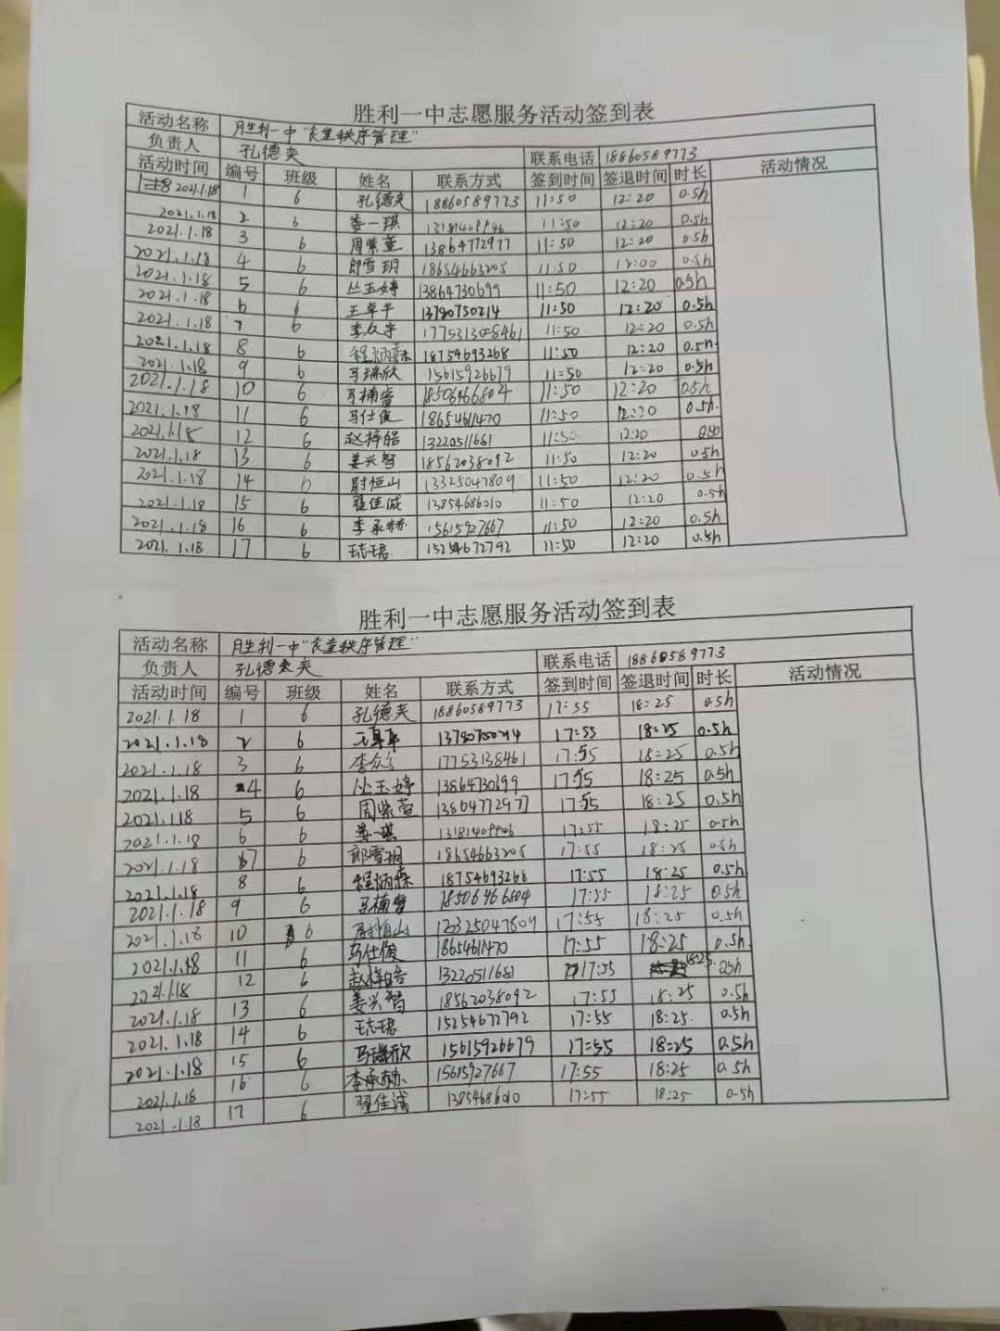 胜利一中志愿服务活动签到表
活动名称 胜利一中"食堂秩序管理"
负责人 孔德奕 联系电话 18860589773
活动时间 编号 班级 姓名 联系方式 签到时间 签退时间 时长 活动情况
2021.1.18 1 6 孔德奕 18860589773 11:50 12:20 0.5h
2021.1.18 2 6 姜一琪 13181409946 11:50 12:20 0.5h
2021.1.18 3 6 周紫萱 13864772977 11:50 12:20 0.5h
2021.1.18 4 6 郎雪玥 18654663205 11:50 12:00 0.5h
2021.1.18 5 6 丛玉婷 13864730699 11:50 12:20 0.5h
2021.1.18 6 6 王卓平 13780750214 11:50 12:20 0.5h
2021.1.18 7 6 李众 11:50 12:20 0.5h
2021.1.18 8 6 程炳森 18754693268 11:50 12:20 0.5h
2021.1.18 9 6 马瑞欣 15615926679 11:50 12:20 0.5h
2021.1.18 10 6 马楠睿 18506466604 11:50 12:20 0.5h
2021.1.18 11 6 马仕俊 18654611470 11:50 12:20 0.5h
2021.1.18 12 6 赵梓皓 13220511681 11:50 12:20
2021.1.18 13 6 姜兴智 18562038092 11:50 12:20 0.5h
2021.1.18 14 6 尉恒山 13325047809 11:50 12:20 0.5h
2021.1.18 15 6 翟佳诚 13854686010 11:50 12:20 0.5h
2021.1.18 16 6 李承 15615927667 11:50 12:20 0.5h
2021.1.18 17 6 王志珺 15254672792 11:50 12:20 0.5h
胜利一中志愿服务活动签到表
活动名称 胜利一中"食堂秩序管理"
负责人 孔德奕 联系电话 18860589773
活动时间 编号 班级 姓名 联系方式 签到时间 签退时间 时长 活动情况
2021.1.18 1 6 孔德奕 18860589773 17:55 18:25 0.5h
2021.1.18 2 6 王卓平 13780750214 17:55 18:25 0.5h
2021.1.18 3 6 李众 17753138461 17:55 18:25 0.5h
2021.1.18 4 6 丛玉婷 13864730699 17:55 18:25 0.5h
2021.1.18 5 6 周紫萱 13864772977 17:55 18:25 0.5h
2021.1.18 6 6 姜一琪 13181409946 17:55 18:25 0.5h
2021.1.18 7 6 郎雪玥 18654663205 17:55 18:25 0.5h
2021.1.18 8 6 程炳森 18754693268 17:55 18:25 0.5h
2021.1.18 9 6 马楠睿 18506466604 17:55 18:25 0.5h
2021.1.18 10 6 尉恒山 17:55 18:25 0.5h
2021.1.18 11 6 马仕俊 18654611470 17:55 18:25 0.5h
2021.1.18 12 6 赵梓皓 13220511681 17:55 18:25 0.5h
2021.1.18 13 6 姜兴智 18562038092 17:55 18:25 0.5h
2021.1.18 14 6 王志珺 15254672792 17:55 18:25 0.5h
2021.1.18 15 6 马瑞欣 15615926679 17:55 18:25 0.5h
2021.1.18 16 6 李承 15615927667 17:55 18:25 0.5h
2021.1.18 17 6 翟佳诚 13854686010 17:55 18:25 0.5h